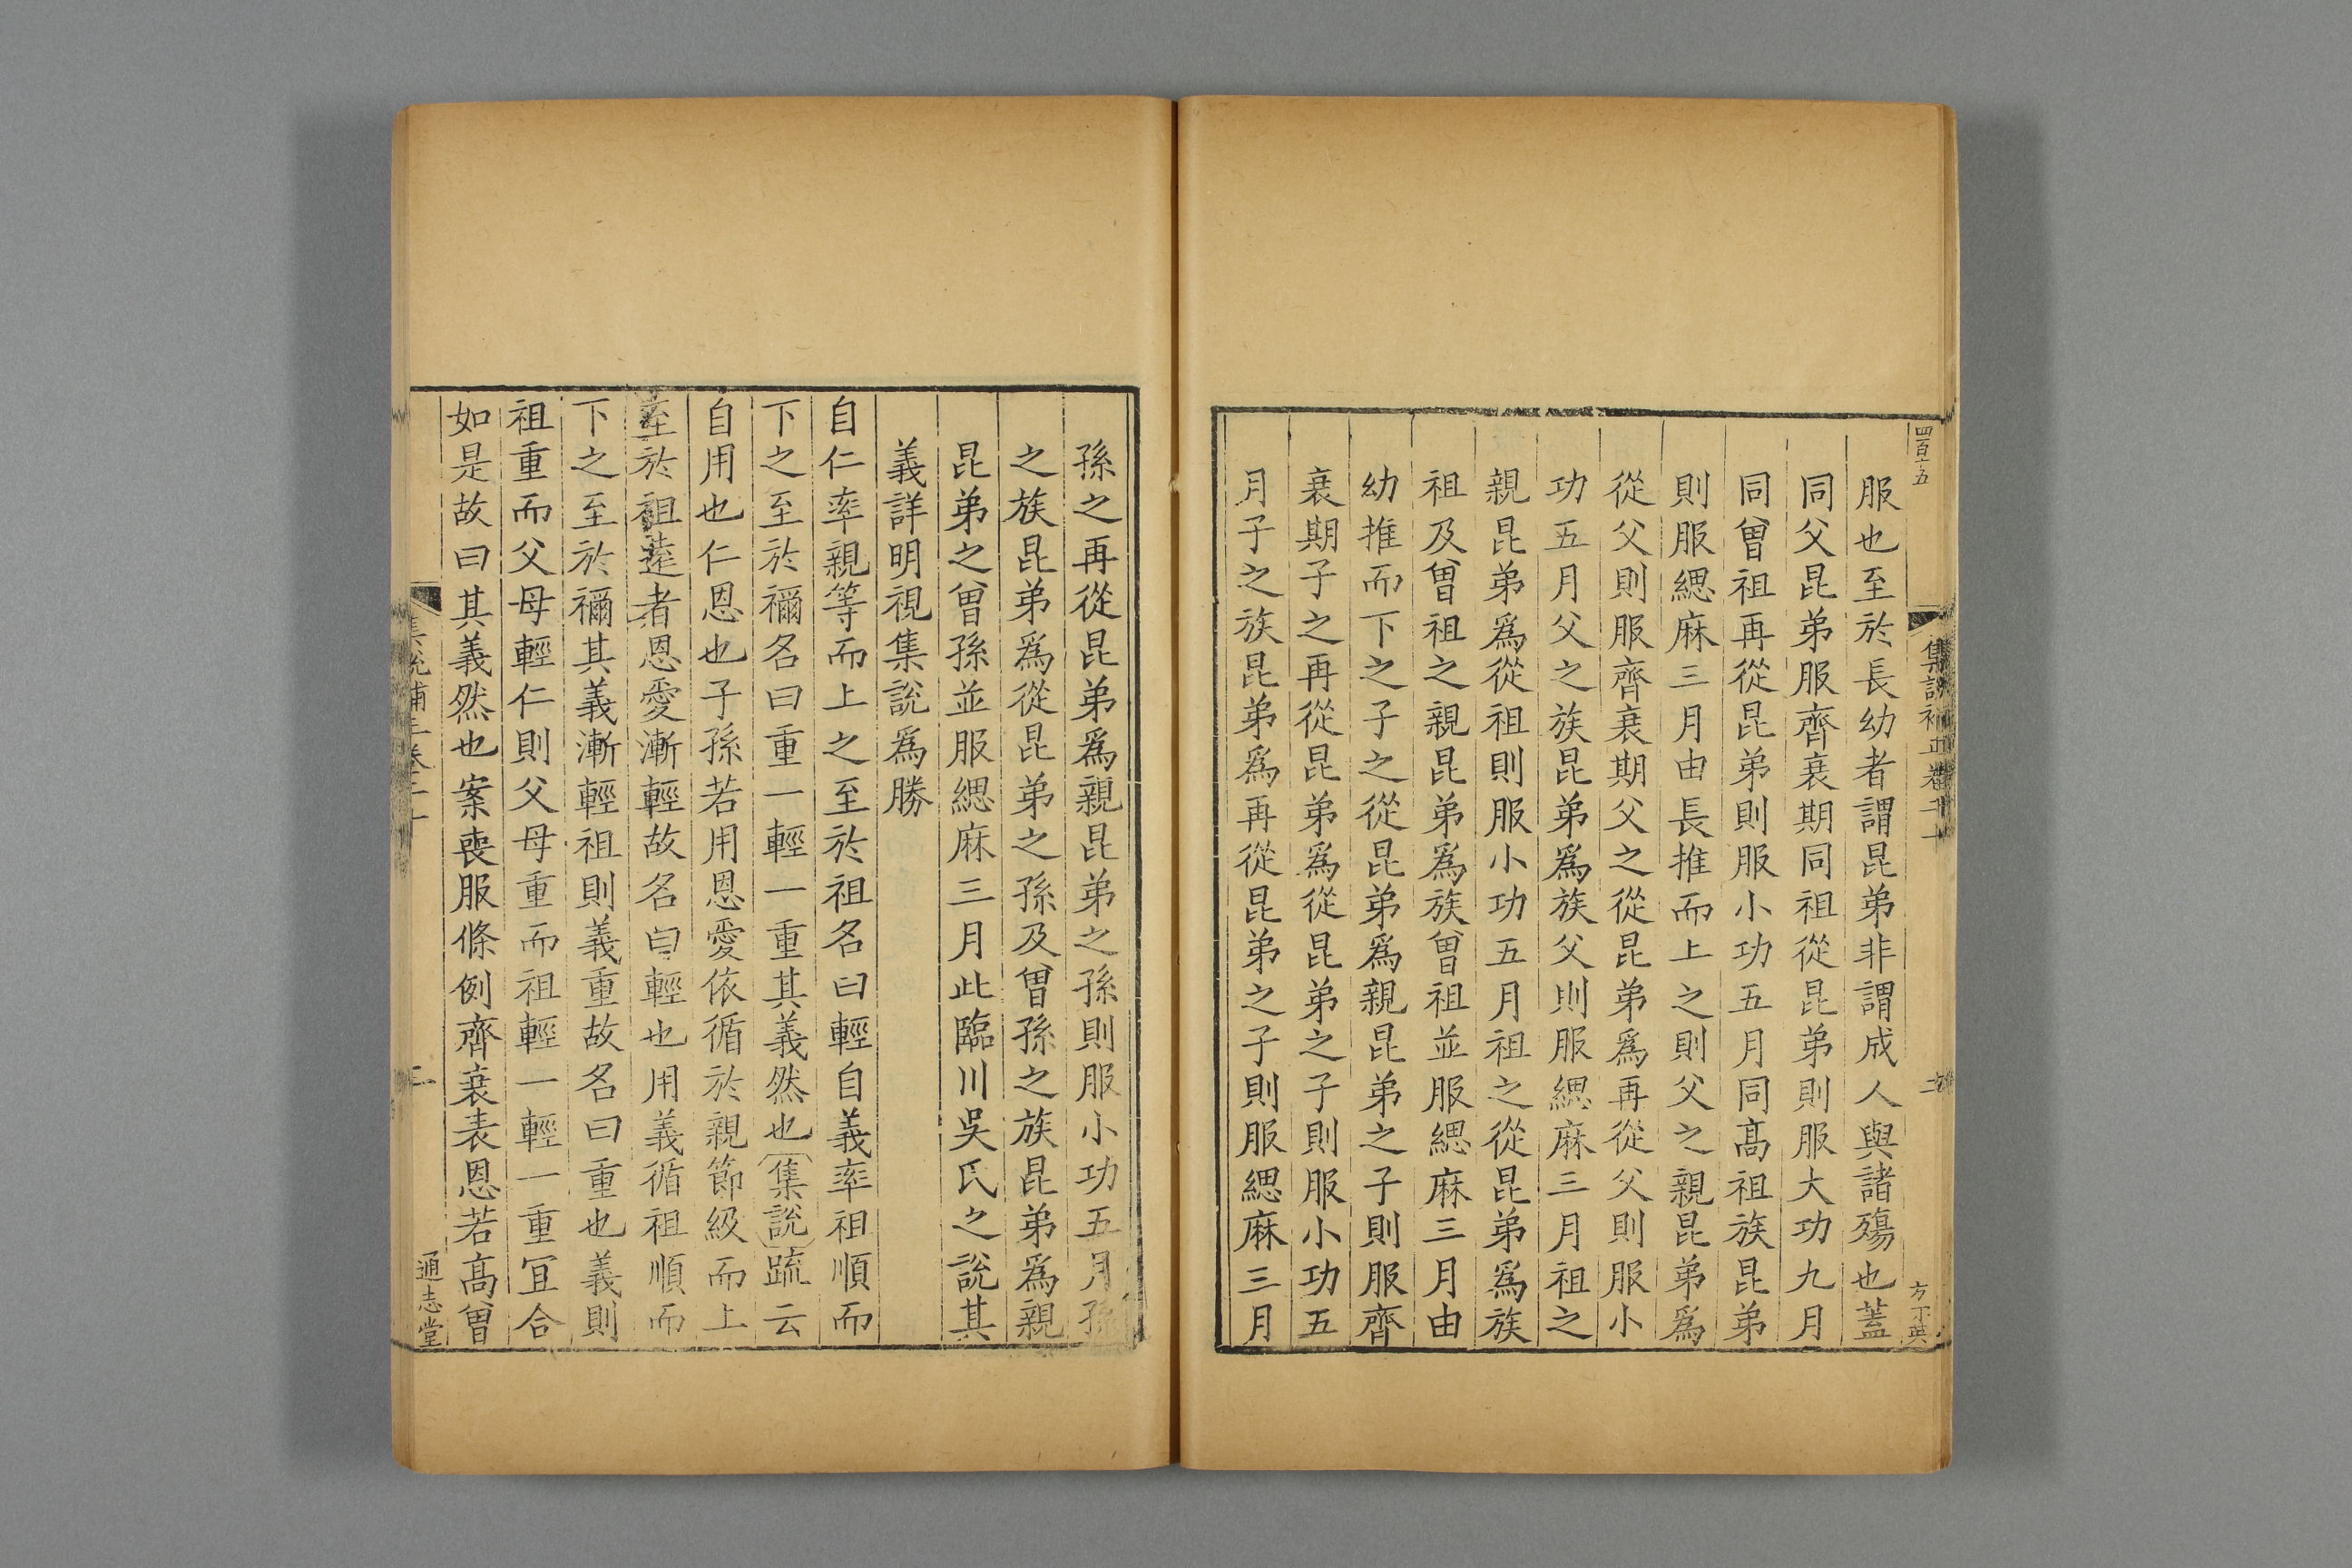 四百十五
服也至於長幼者謂昆弟非謂成人與諸殤也蓋
同父昆弟服齊衰期同祖從昆弟則服大功九月
同曾祖再從昆弟則服小功五月同高祖族昆弟
則服緦麻三月由長推而上之則父之親昆弟爲
從父則服齊衰期父之從昆弟爲再從父則服小
功五月父之族昆弟爲族父則服緦麻三月祖之
親昆弟爲從祖則服小功五月祖之從昆弟爲族
祖及曾祖之親昆弟爲族曾祖並服緦麻三月由
幼推而下之子之從昆弟爲親昆弟之子則服齊
衰期子之再從昆弟爲從昆弟之子則服小功五
月子之族昆弟爲再從昆弟之子則服緦麻三月
孫之再從昆弟爲親昆弟之孫則服小功五月孫
之族昆弟爲從昆弟之孫及曾孫之族昆弟爲親
昆弟之曾孫並服緦麻三月此臨川吳氏之說其
義詳明視集說爲勝
自仁率親等而上之至於祖名曰輕自義率祖順而
下之至於禰名曰重一輕一重其義然也集說疏云
自用也仁恩也子孫若用恩愛依循於親節級而上
至於祖遠者恩愛漸輕故名曰輕也用義循祖順而
下之至於禰其義漸輕祖則義重故名曰重也義則
祖重而父母輕仁則父母重而祖輕一輕一重宜合
如是故曰其義然也案喪服條例齊衰表恩若高曾
通志堂